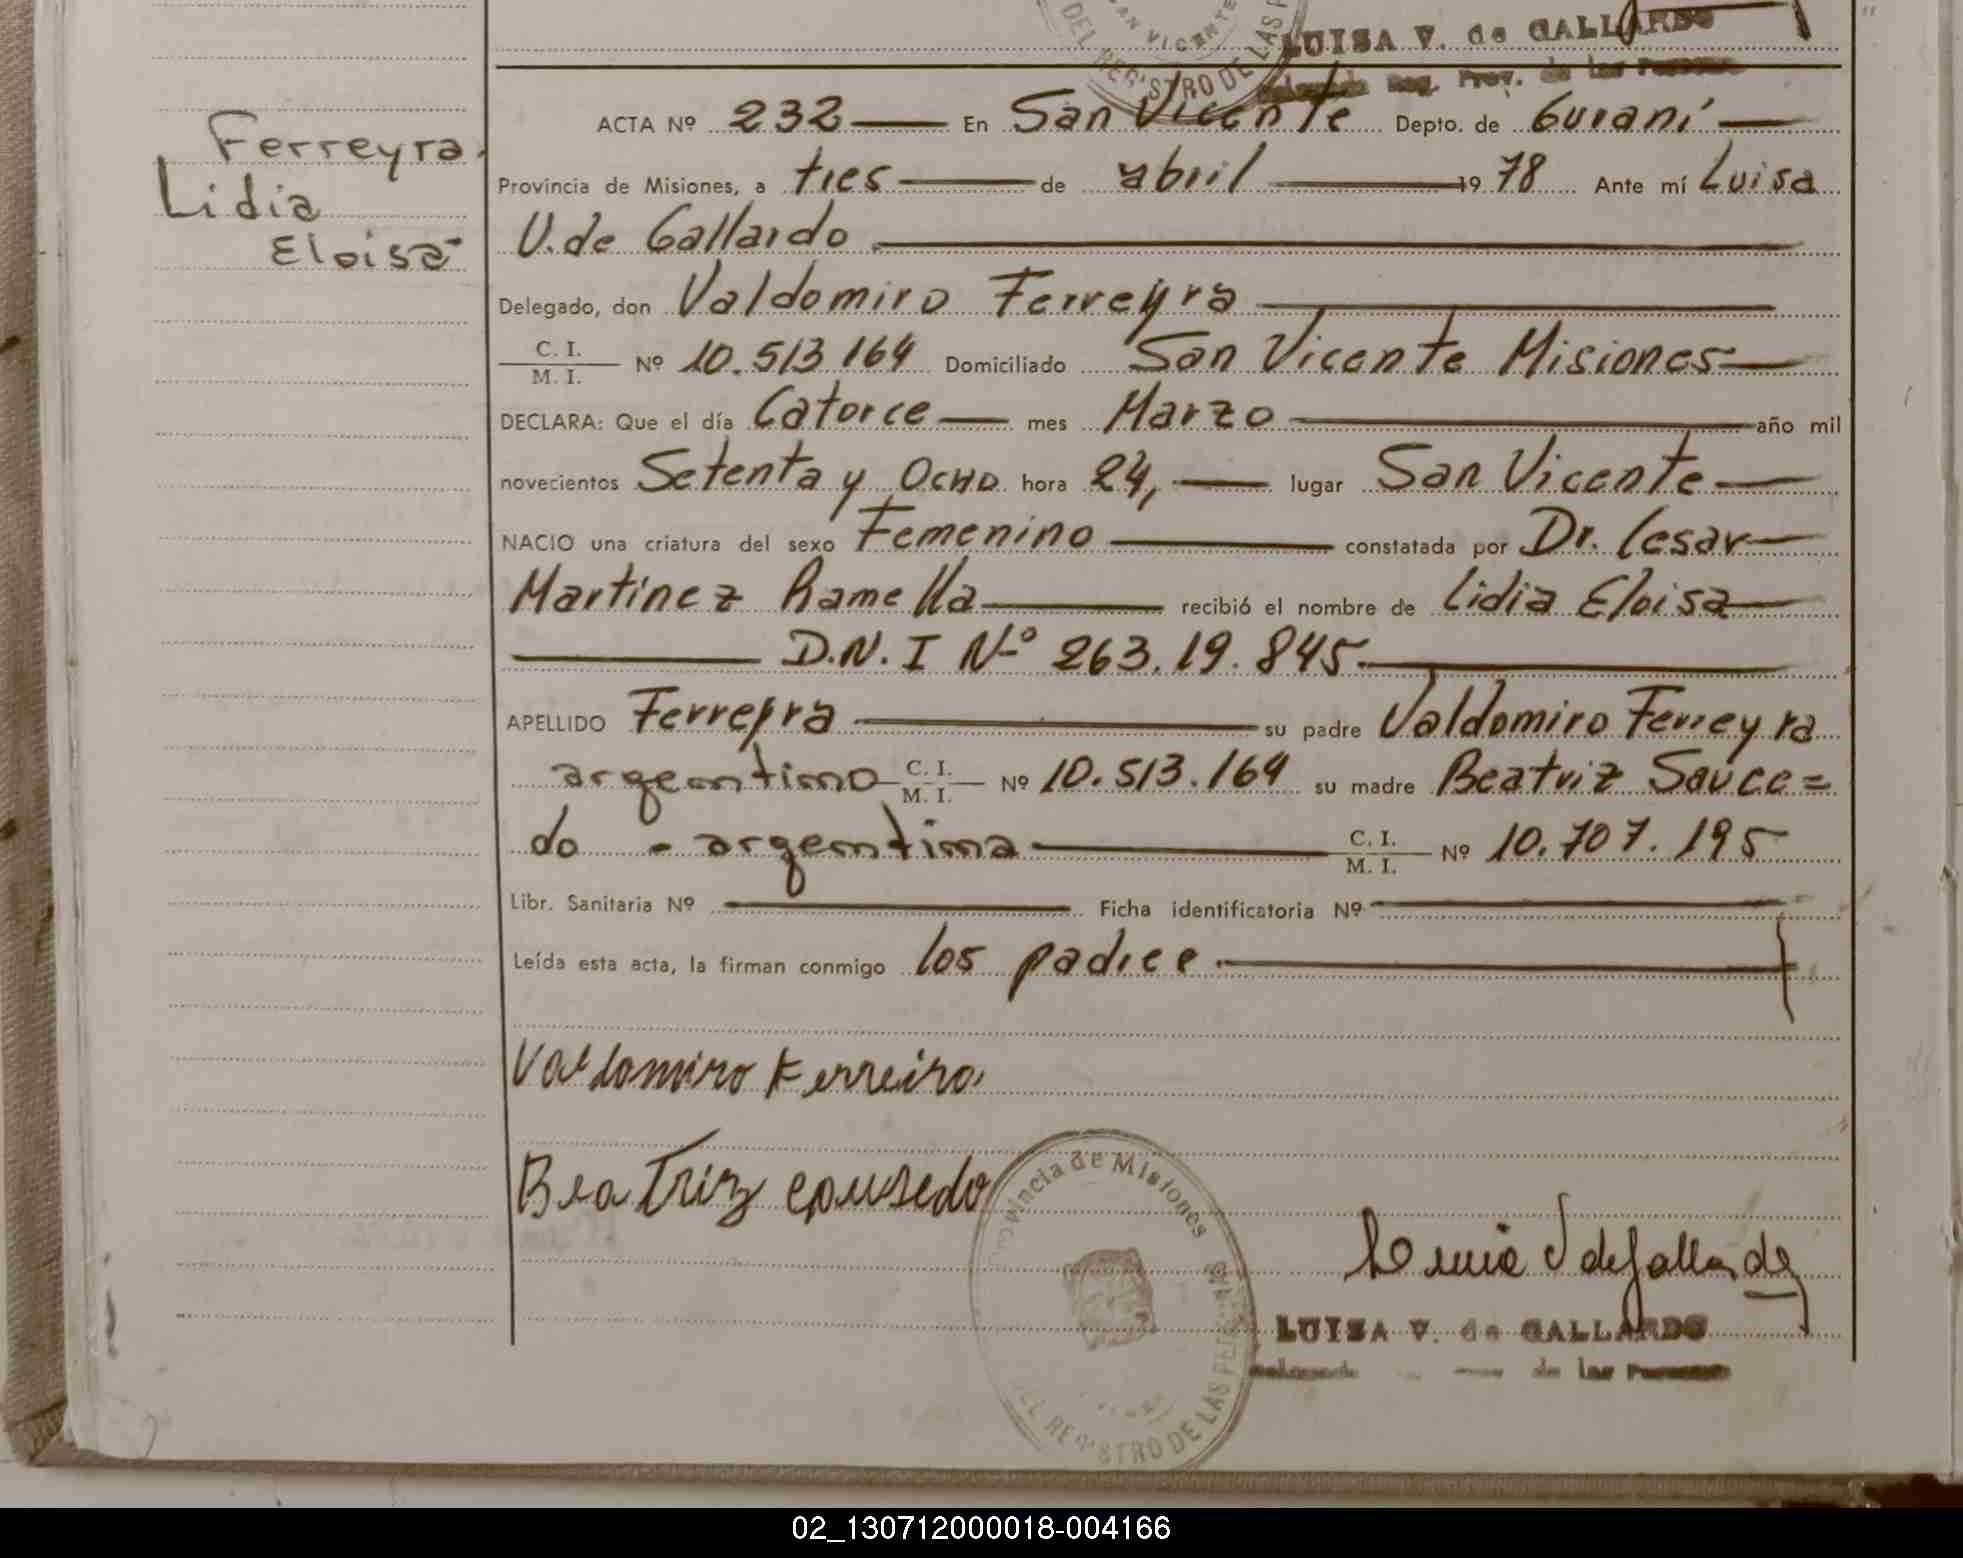 SAN VICENTE
DEL REGISTRO DE LAS P
LUISA V. de GALLARDO
Reg. Prov. de las Personas
Ferreyra
Lidia
Eloisa
ACTA Nº 232 En San Vicente Depto. de Guraní
Provincia de Misiones, a tres de abril 1978 Ante mí Luisa
V. de Gallardo
Delegado, don Valdomiro Ferreyra
C. I. / M. I. Nº 10.513.164 Domiciliado San Vicente Misiones
DECLARA: Que el día Catorce mes Marzo año mil
novecientos Setenta y Ocho hora 24, lugar San Vicente
NACIO una criatura del sexo Femenino constatada por Dr. Cesar
Martínez Ramella recibió el nombre de Lidia Eloisa
D.N.I Nº 263.19.845.
APELLIDO Ferreyra su padre Valdomiro Ferreyra
argentino C. I. / M. I. Nº 10.513.164 su madre Beatriz Sauce=
do - argentina C. I. / M. I. Nº 10.707.195
Libr. Sanitaria Nº Ficha identificatoria Nº
Leída esta acta, la firman conmigo los padree
Valdomiro Ferreira
Beatriz
Provincia de Misiones
DEL REGISTRO DE LAS PER
Luisa V de Gallardo
LUISA V. de GALLARDO
de las Personas
02_130712000018-004166